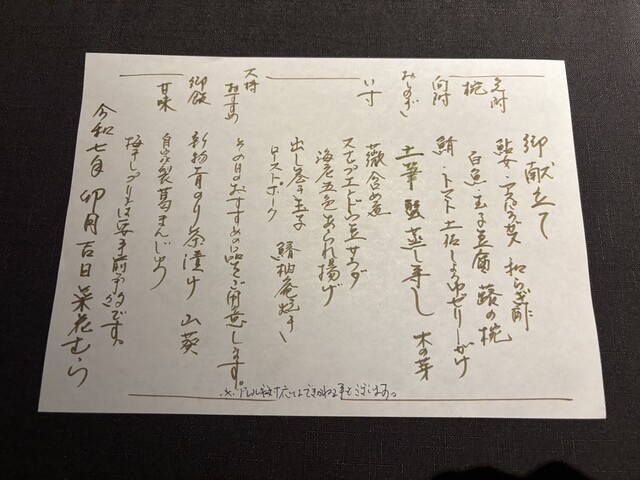 御献立て
先附 鮎女・アスパラガス 和らぎ酢
椀 白魚・玉子豆腐 蕗の椀
向附 鮪・トマト土佐しょうゆゼリーがけ
おしのぎ 土筆 蟹 蒸し寿し 木の芽
八寸 蕨含め煮
スナップエンドウ豆サラダ
海老五色あられ揚げ
出し巻き玉子 鰆柚庵焼き
ローストポーク
大将おすすめ その日のおすすめの品をご用意します。
御飯 新物青のり茶漬け 山葵
甘味 自家製葛まんじゅう
梅干しプリンは要事前予約です。
令和七年 卯月吉日 菜花むら
※アレルギー対応はできかねる事もございます。